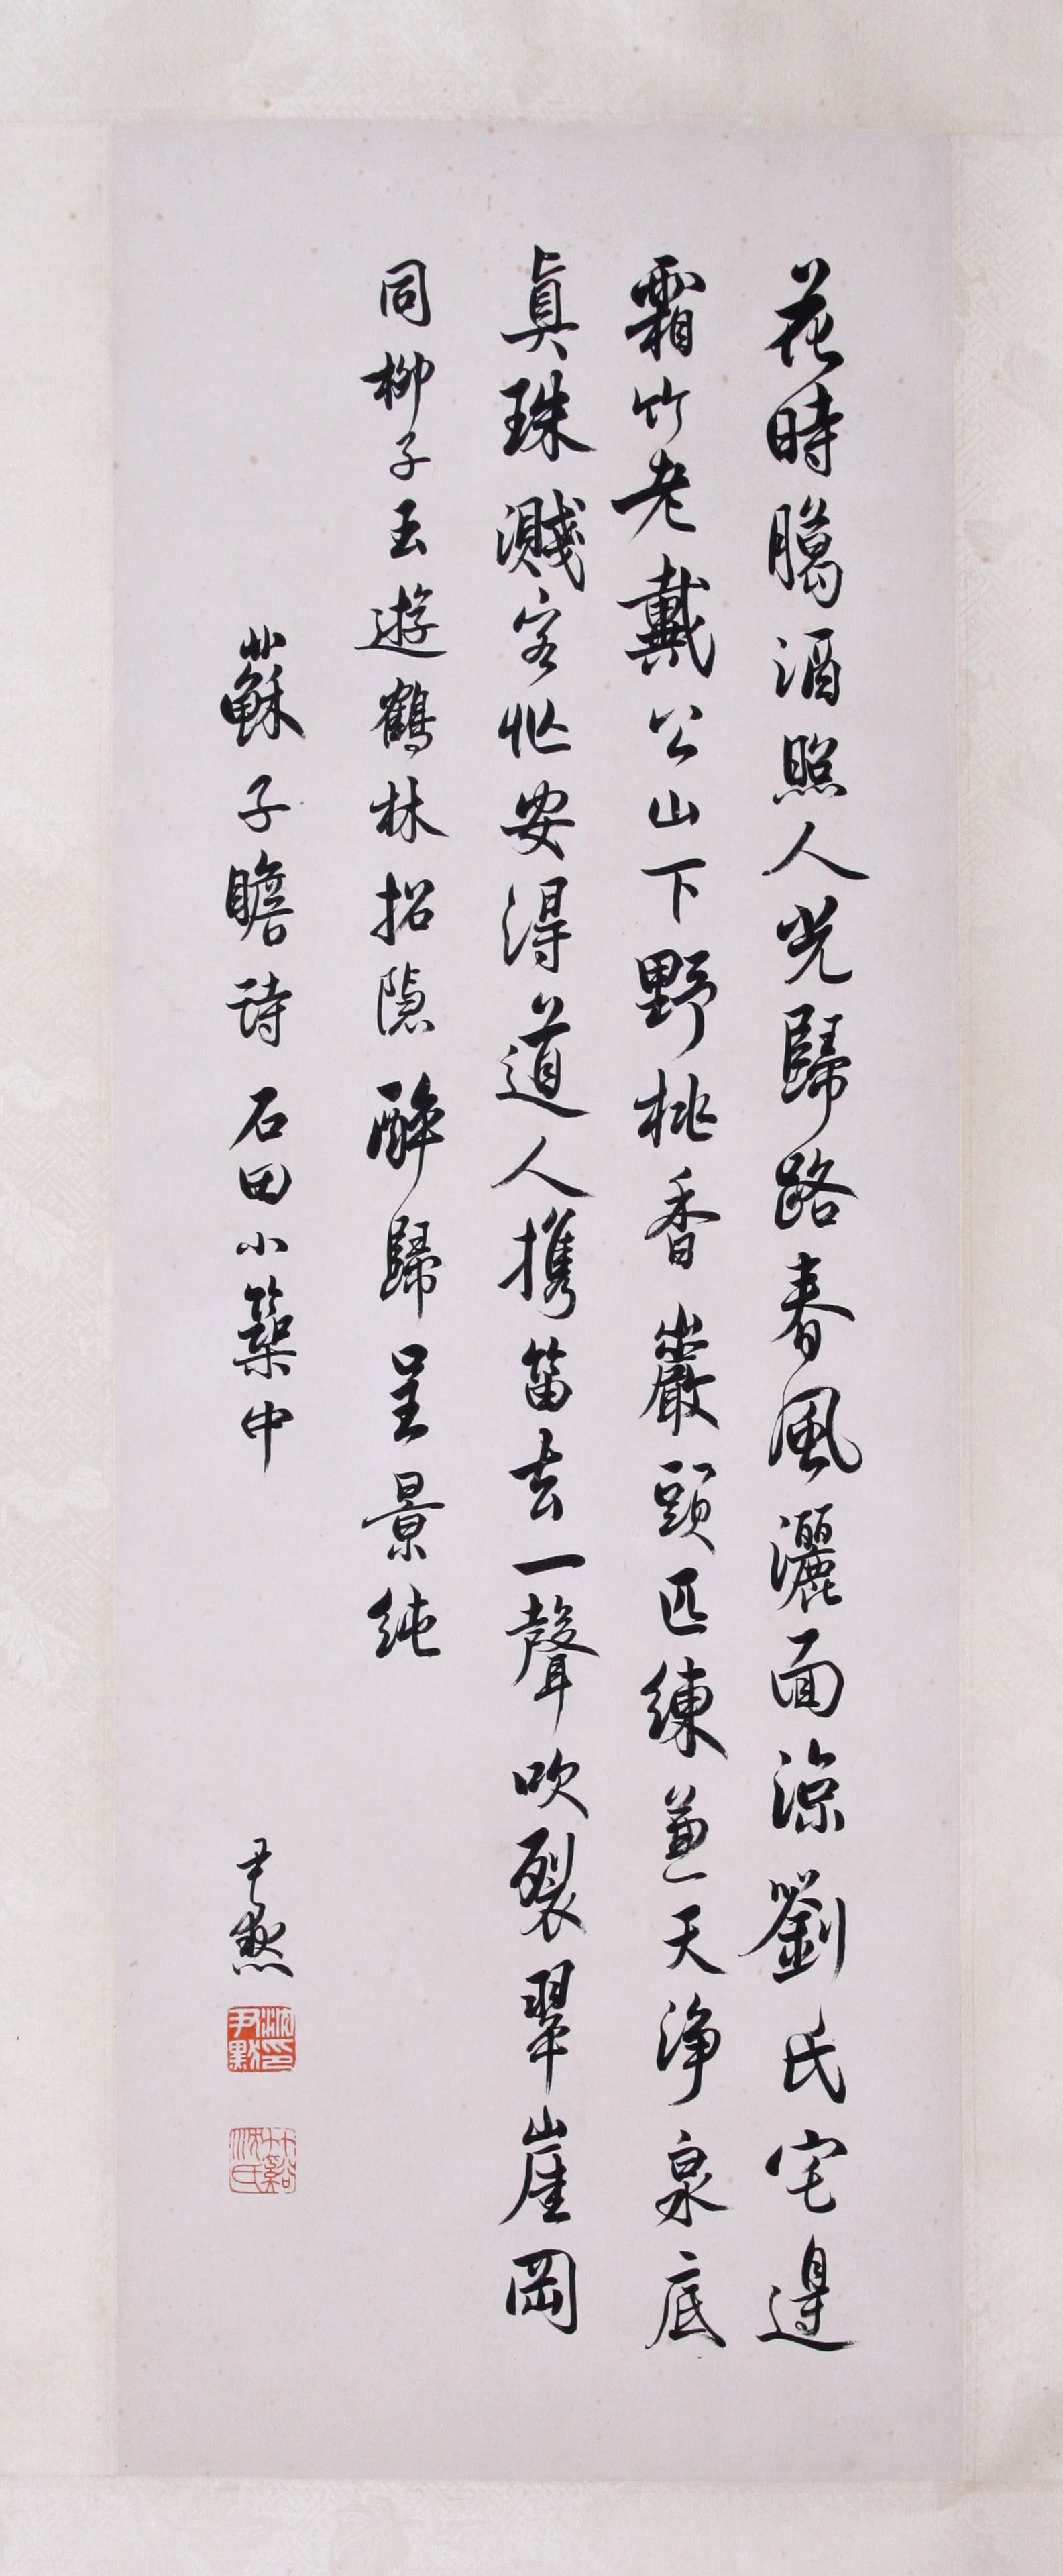 花時臈酒照人光歸路春風灑面涼劉氏宅邊
霜竹老戴公山下野桃香巖頭匹練兼天淨泉底
真珠濺客忙安得道人攜笛去一聲吹裂翠崖岡
同柳子玉遊鶴林招隱醉歸呈景純
蘇子瞻詩 石田小築中
尹默
沈尹默印
竹谿沈氏